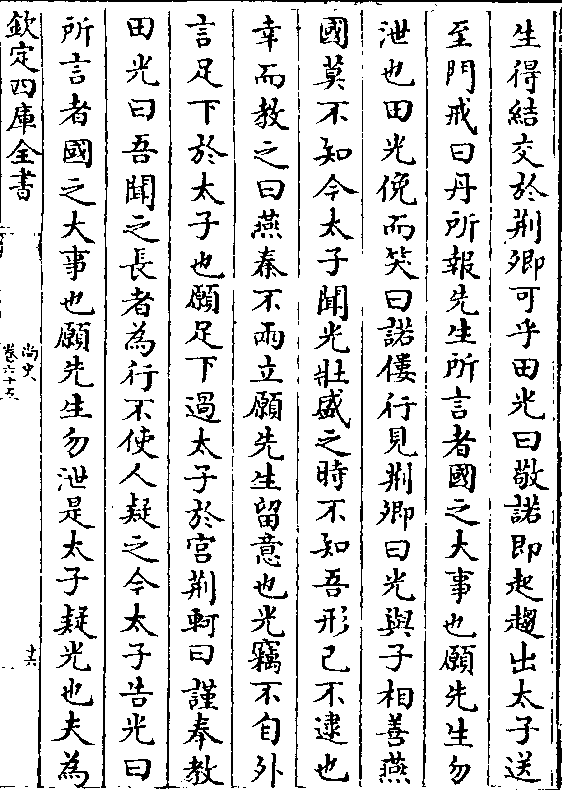 生得結交於荆卿可乎田光曰敬諾即起趨出太子送
至門戒曰丹所報先生所言者國之大事也願先生勿
泄也田光俛而笑曰諾僂行見荆卿曰光與子相善燕
國莫不知今太子聞光壯盛之時不知吾形已不逮也
幸而教之曰燕秦不兩立願先生留意也光竊不自外
言足下於太子也願足下過太子於宫荆軻曰謹奉教
田光曰吾聞之長者為行不使人疑之今太子告光曰
所言者國之大事也願先生勿泄是太子疑光也夫為
欽定四庫全書
尚史
卷六十五
十六